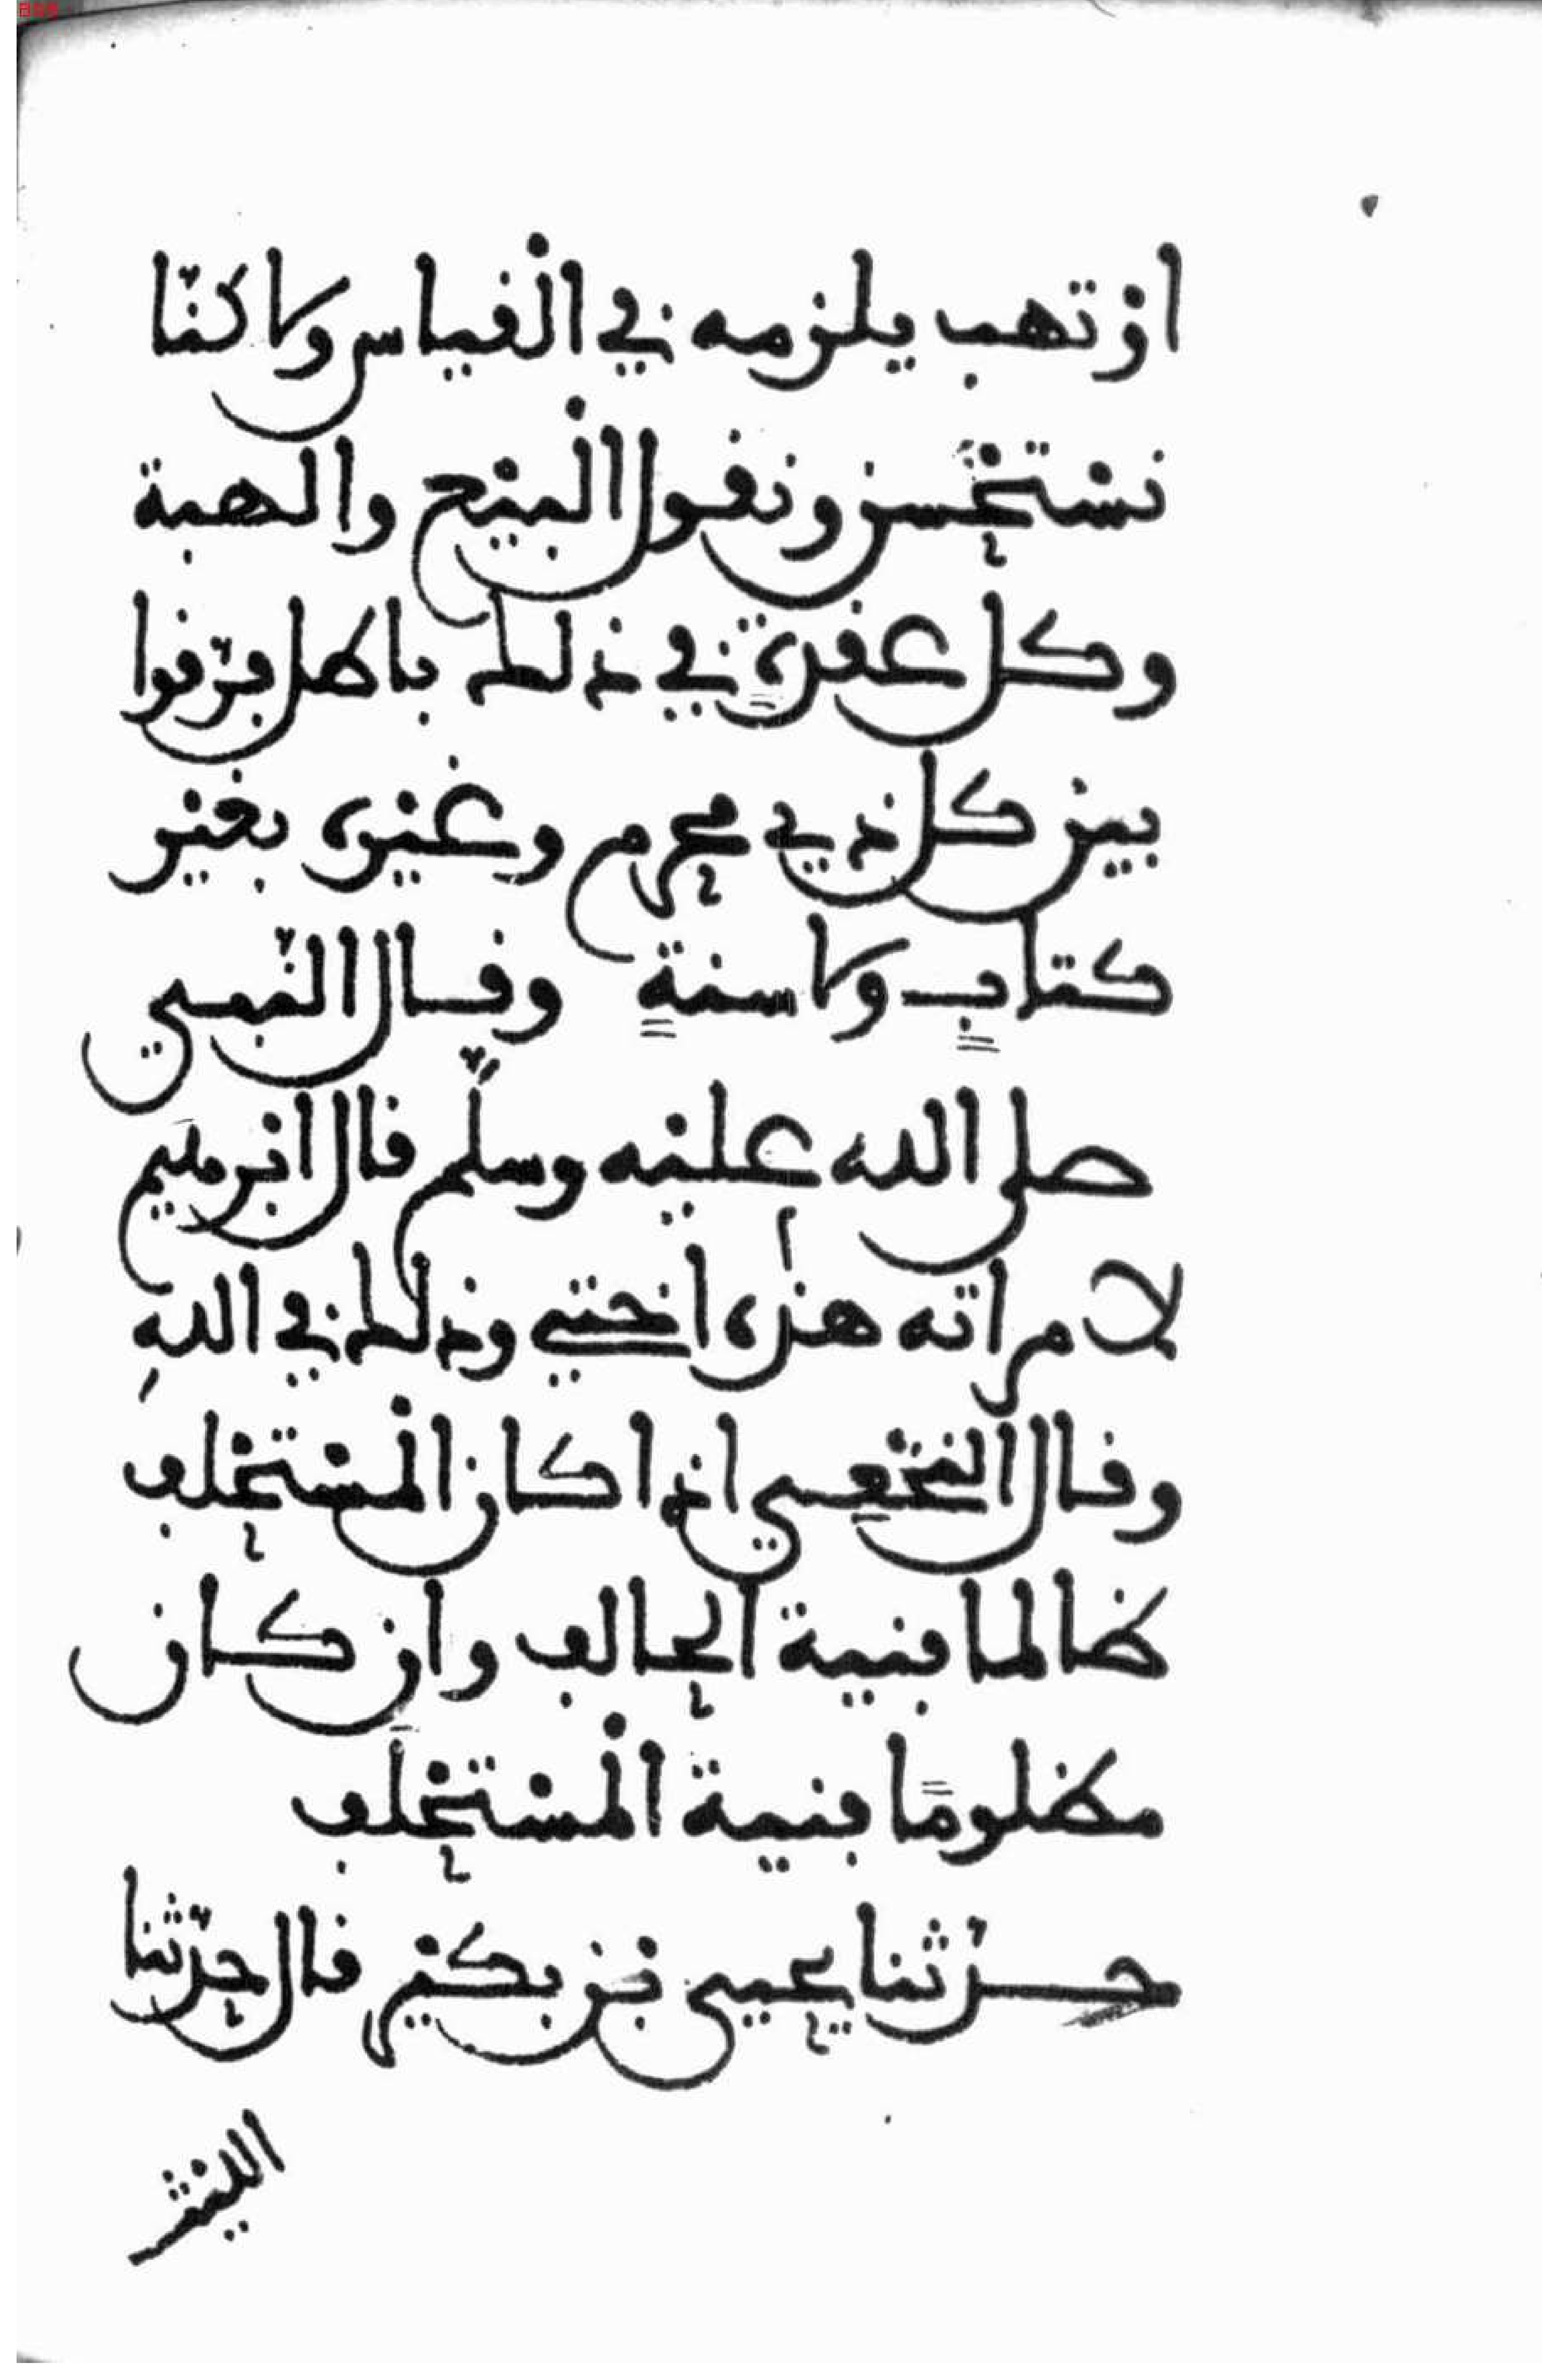 اوْ تهب يلزمه في الْقياس ولاكنّا
نسْتحْسن ونقول الْبيْع والهبة
وكل عقدةٍ في ذلك باطل فرّقوا
بين كل ذي محرم وغيْره بغيْر
كتابٍ ولا سنةٍ وقال النّبي
صلى الله عليْه وسلّم قال ابْرهيم
لامراته هذه اختي وذلك في اللهِ
وقال النّخعي اذا كان الْمسْتحْلِف
ظالما فنية الحالف وان كان
مظلومًا فنية الْمسْتحْلَف
حدثنا يحيى بْن بكيْر قال حدّثنا
الليْث